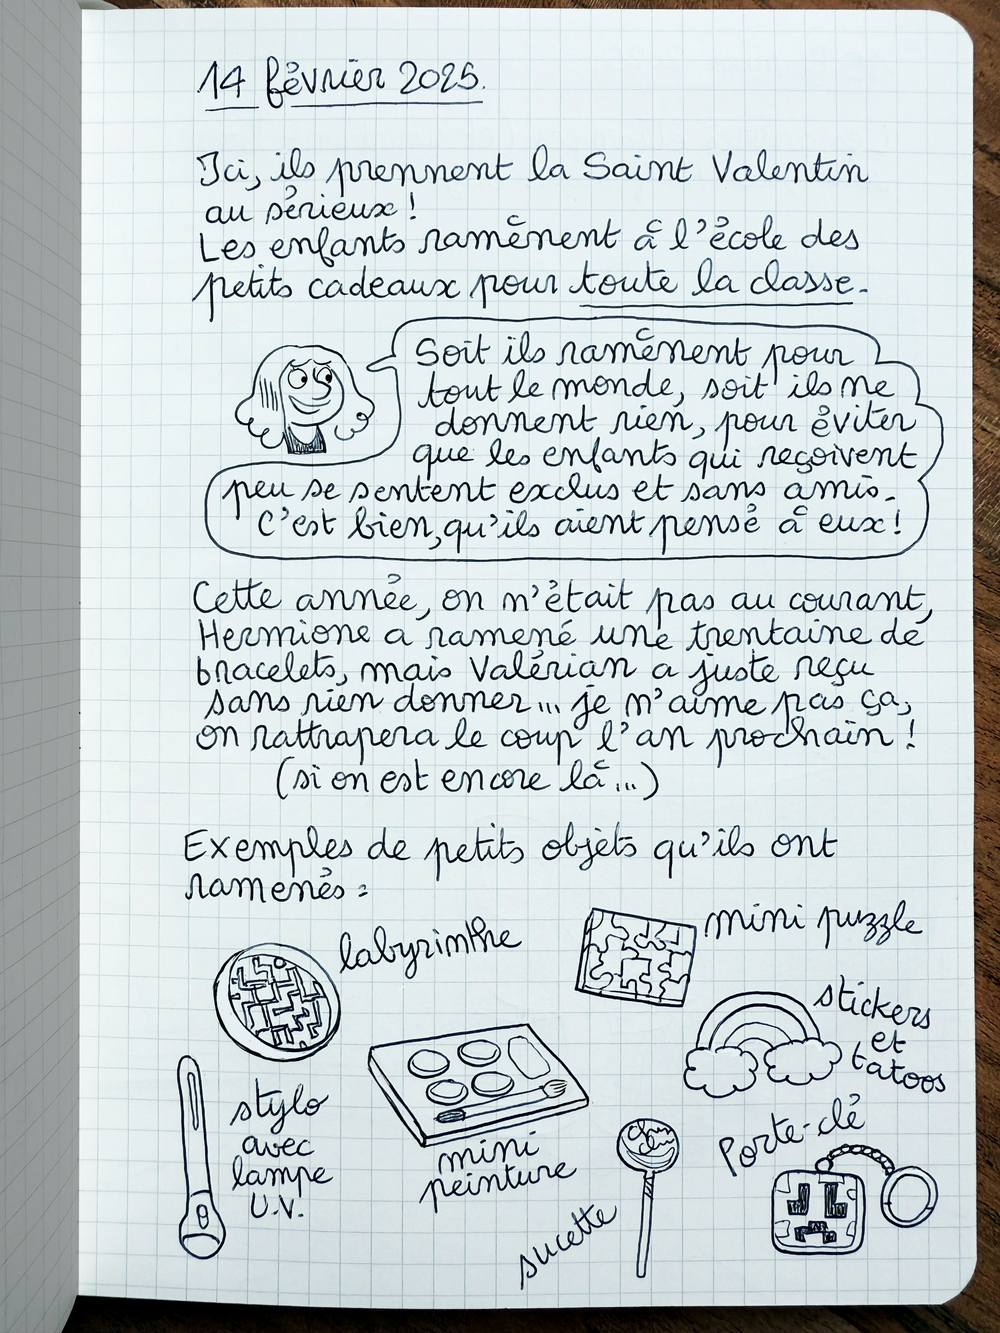 14 février 2025.
Ici, ils prennent la Saint Valentin
au sérieux !
Les enfants ramènent à l'école des
petits cadeaux pour toute la classe.
Soit ils ramènent pour
tout le monde, soit ils ne
donnent rien, pour éviter
que les enfants qui reçoivent
peu se sentent exclus et sans amis.
C'est bien, qu'ils aient pensé à eux !
Cette année, on n'était pas au courant,
Hermione a ramené une trentaine de
bracelets, mais Valérian a juste reçu
sans rien donner... je n'aime pas ça,
on rattrapera le coup l'an prochain !
(si on est encore là...)
Exemples de petits objets qu'ils ont
ramenés :
labyrinthe
mini puzzle
stickers
et
tatoos
stylo
avec
lampe
U.V.
mini
peinture
sucette
Porte-clé